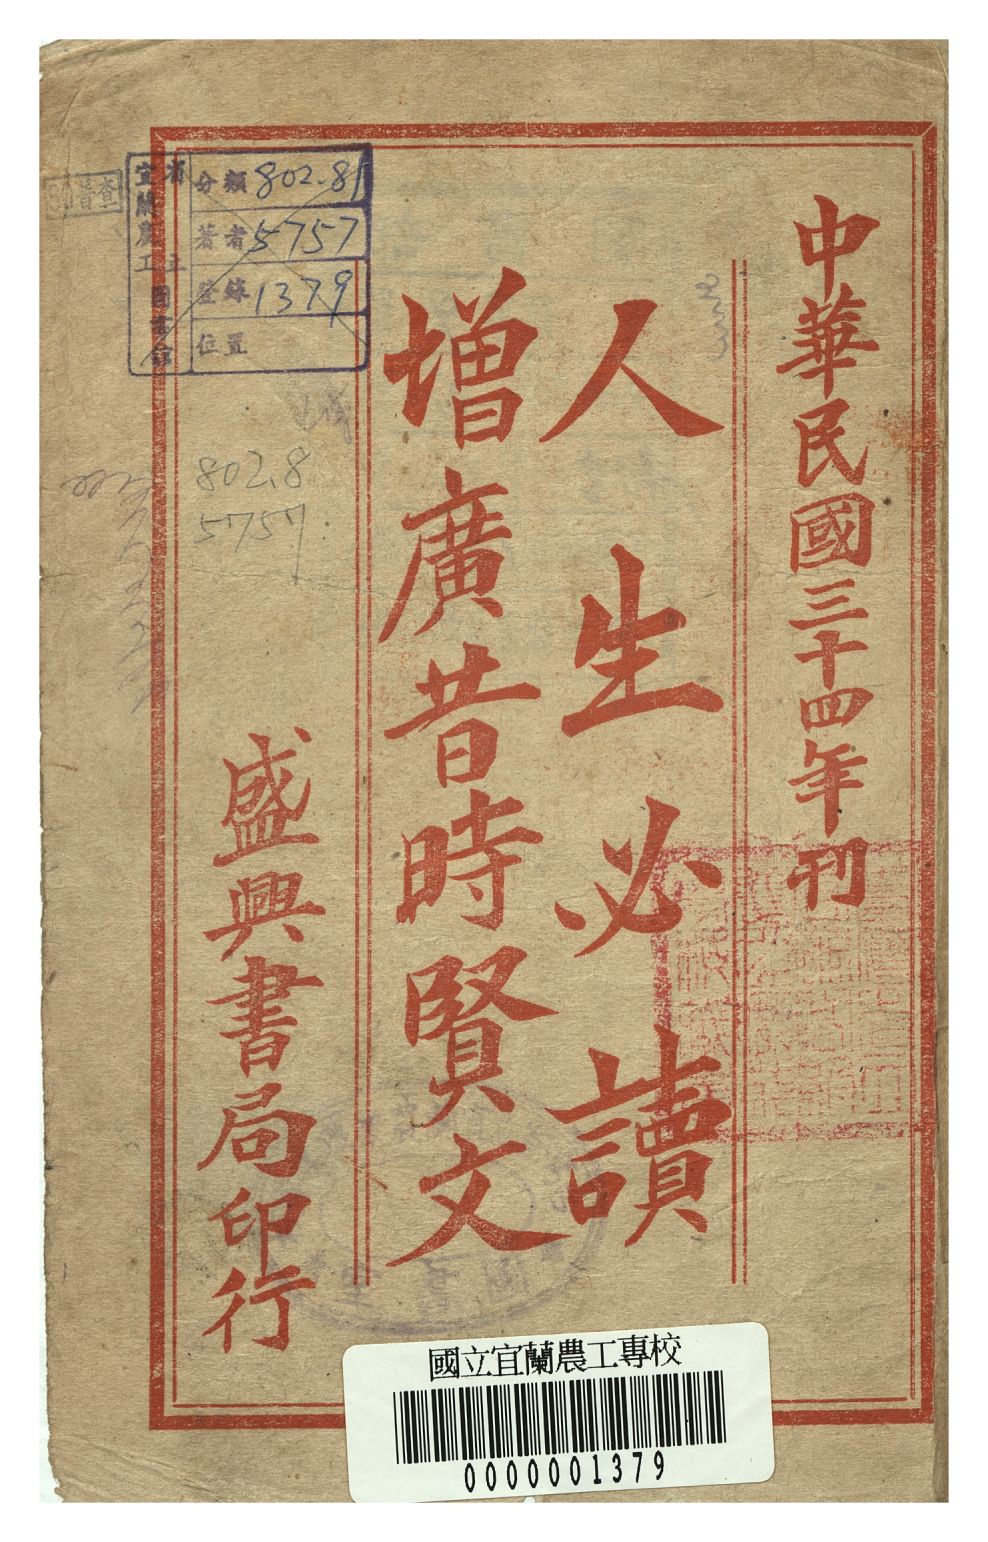 中華民國三十四年刊
人生必讀
增廣昔時賢文
盛興書局印行
分類 802.81
著者 5757
登錄 1379
位置
宜蘭農工
圖書館
802.8
5757
國立宜蘭農工專校
0000001379